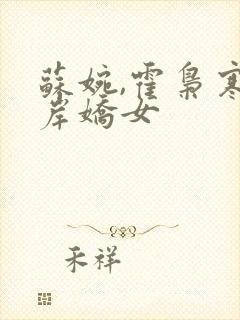 蘇婉,霍梟寒
岸嬌女
禾祥